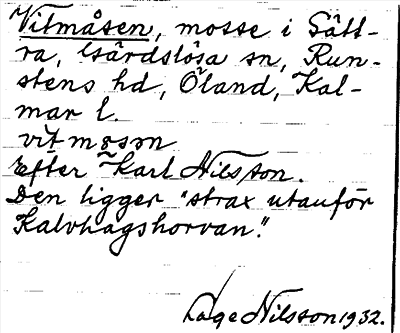 Vitmåsen, mosse i Sätt-
ra, Gärdslösa sn, Run-
stens hd, Öland, Kal-
mar l.
vit mɷsən
Efter Karl Nilsson.
Den ligger "strax utanför
Kalvhagshorvan".
Åage Nilsson 1932.